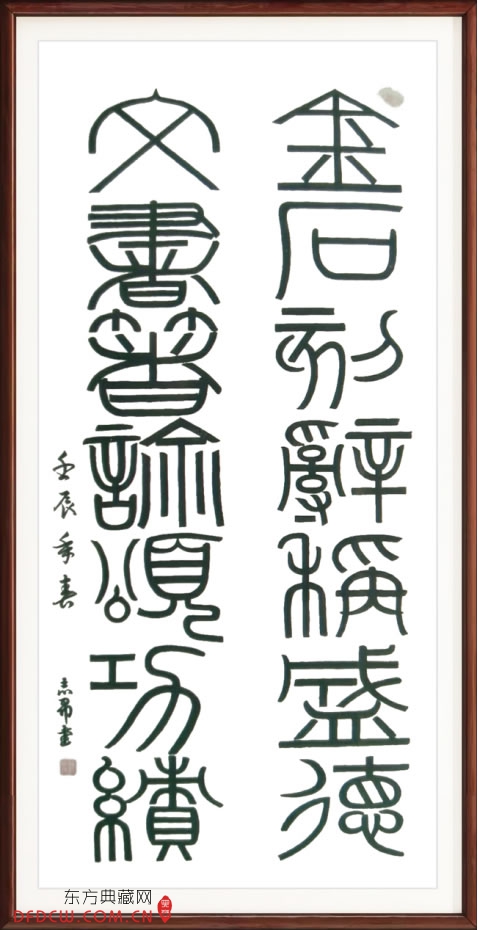 金石刻辭稱盛德
文書著論頌功績
壬辰年春
志昂書
东方典藏网
DFDCW.COM.CN